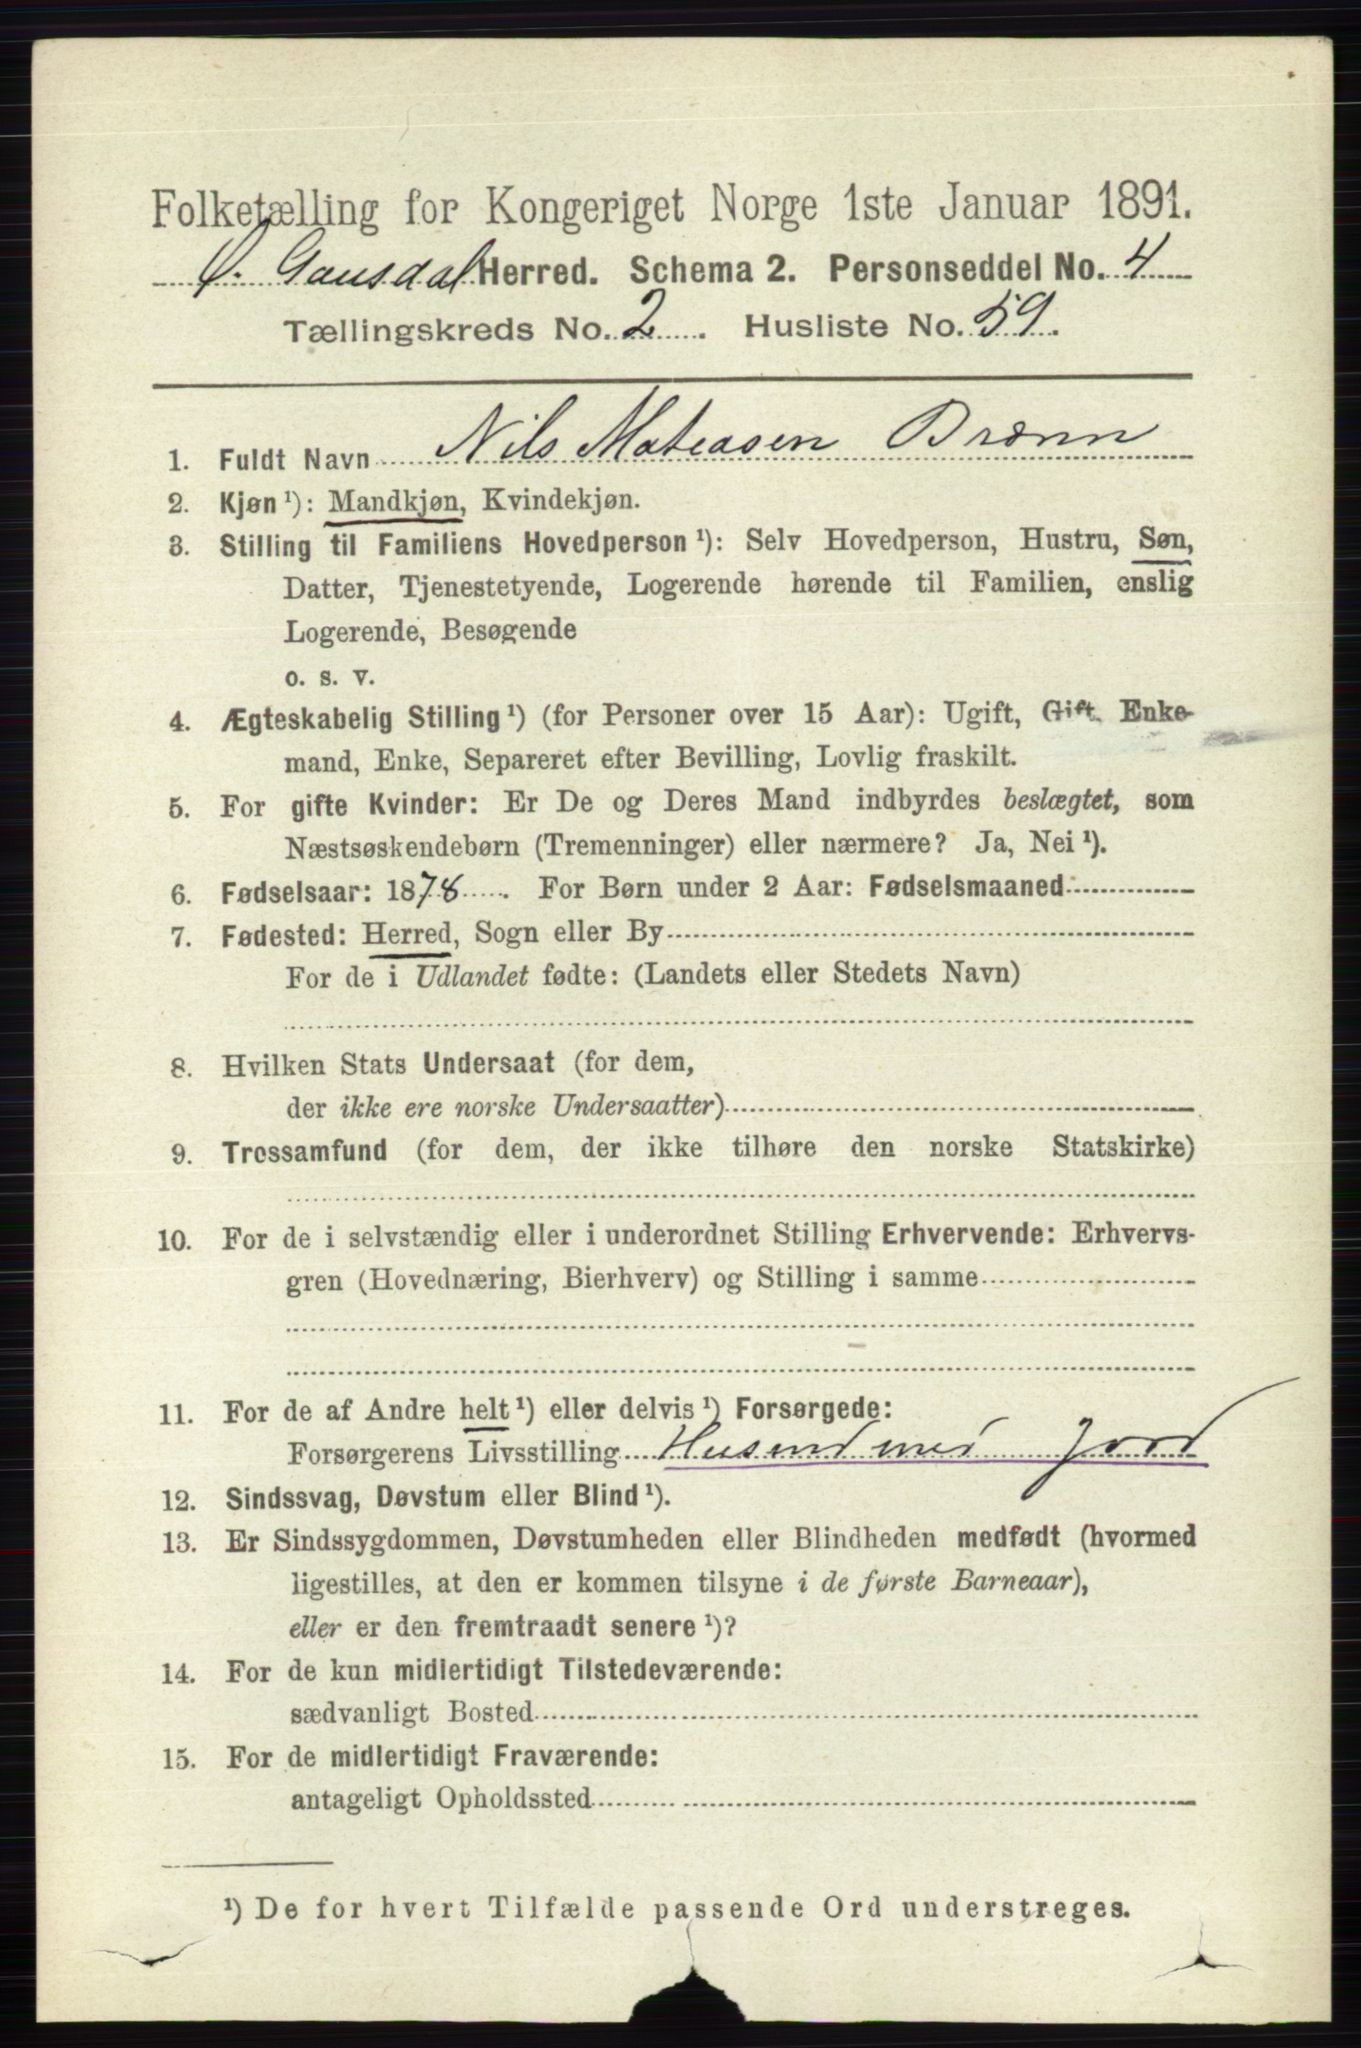 Folketælling for Kongeriget Norge 1ste Januar 1891.
Ø. Gausdal Herred. Schema 2. Personseddel No. 4
Tællingskreds No. 2. Husliste No. 59.
1. Fuldt Navn Nils Mateasen Brænn
2. Kjøn¹): Mandkjøn, Kvindekjøn.
3. Stilling til Familiens Hovedperson¹): Selv Hovedperson, Hustru, Søn,
Datter, Tjenestetyende, Logerende hørende til Familien, enslig
Logerende, Besøgende
o. s. v.
4. Ægteskabelig Stilling¹) (for Personer over 15 Aar): Ugift, Gift, Enke-
mand, Enke, Separeret efter Bevilling, Lovlig fraskilt.
5. For gifte Kvinder: Er De og Deres Mand indbyrdes beslægtet, som
Næstsøskendebørn (Tremenninger) eller nærmere? Ja, Nei¹).
6. Fødselsaar: 1878. For Børn under 2 Aar: Fødselsmaaned
7. Fødested: Herred, Sogn eller By
For de i Udlandet fødte: (Landets eller Stedets Navn)
8. Hvilken Stats Undersaat (for dem,
der ikke ere norske Undersaatter)
9. Trossamfund (for dem, der ikke tilhøre den norske Statskirke)
10. For de i selvstændig eller i underordnet Stilling Erhvervende: Erhvervs-
gren (Hovednæring, Bierhverv) og Stilling i samme
11. For de af Andre helt¹) eller delvis¹) Forsørgede:
Forsørgerens Livsstilling Husmd med Jord
12. Sindssvag, Døvstum eller Blind¹).
13. Er Sindssygdommen, Døvstumheden eller Blindheden medfødt (hvormed
ligestilles, at den er kommen tilsyne i de første Barneaar),
eller er den fremtraadt senere¹)?
14. For de kun midlertidigt Tilstedeværende:
sædvanligt Bosted
15. For de midlertidigt Fraværende:
antageligt Opholdssted
¹) De for hvert Tilfælde passende Ord understreges.